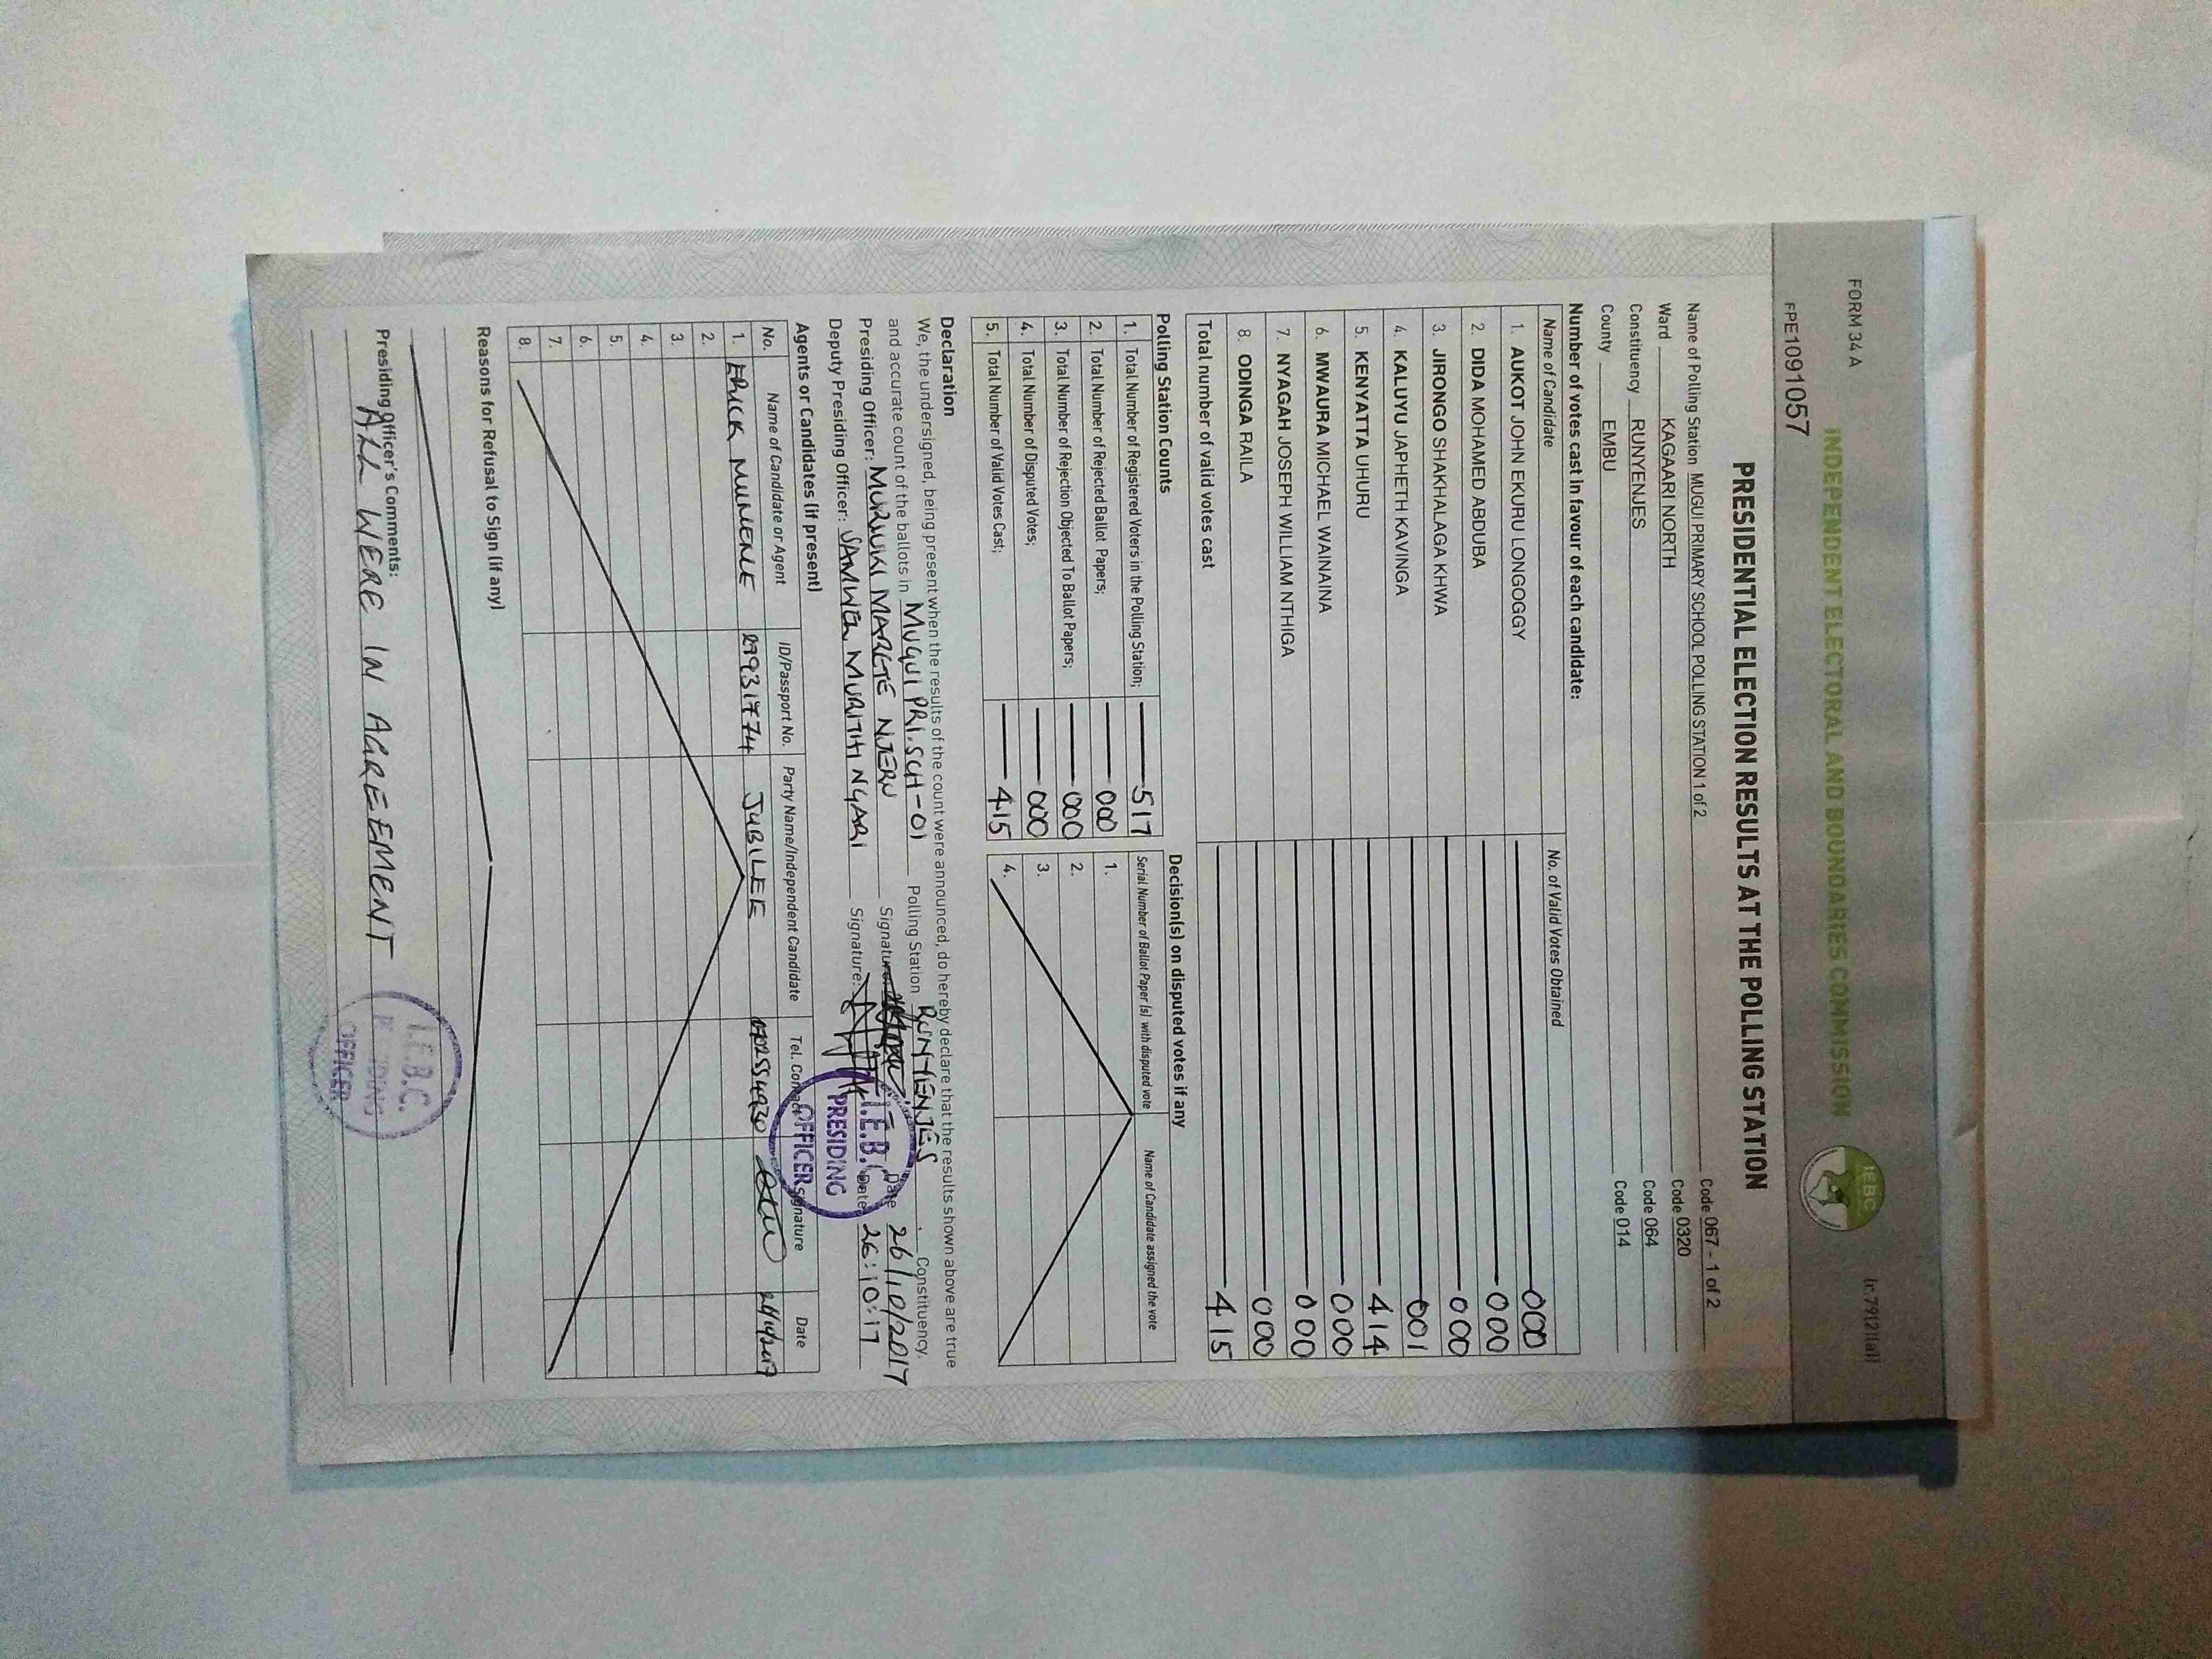 FORM 34 A
INDEPENDENT ELECTORAL AND BOUNDARIES COMMISSION
IEBC
(r.79(2)(a))
FPE1091057
PRESIDENTIAL ELECTION RESULTS AT THE POLLING STATION
Name of Polling Station MUGUI PRIMARY SCHOOL POLLING STATION 1 of 2 Code 067 - 1 of 2
Ward KAGAARI NORTH Code 0320
Constituency RUNYENJES Code 064
County EMBU Code 014
Number of votes cast in favour of each candidate:
Name of Candidate No. of Valid Votes Obtained
1. AUKOT JOHN EKURU LONGOGGY 000
2. DIDA MOHAMED ABDUBA 000
3. JIRONGO SHAKHALAGA KHWA 000
4. KALUYU JAPHETH KAVINGA 001
5. KENYATTA UHURU 414
6. MWAURA MICHAEL WAINAINA 000
7. NYAGAH JOSEPH WILLIAM NTHIGA 000
8. ODINGA RAILA 000
Total number of valid votes cast 415
Polling Station Counts
1. Total Number of Registered Voters in the Polling Station; 517
2. Total Number of Rejected Ballot Papers; 000
3. Total Number of Rejection Objected To Ballot Papers; 000
4. Total Number of Disputed Votes; 000
5. Total Number of Valid Votes Cast; 415
Decision(s) on disputed votes if any
Serial Number of Ballot Paper (s) with disputed vote Name of Candidate assigned the vote
1.
2.
3.
4.
Declaration
We, the undersigned, being present when the results of the count were announced, do hereby declare that the results shown above are true
and accurate count of the ballots in MUGUI PRI.SCH-01 Polling Station RUNYENJES Constituency.
Presiding Officer: MURUUKI MARGTE NJERU Signature: Date 26/10/2017
Deputy Presiding Officer: SAMWEL MURITHI NGARI Signature: Date 26:10:17
I.E.B.C.
PRESIDING
OFFICER
Agents or Candidates (if present)
No. Name of Candidate or Agent ID/Passport No. Party Name/Independent Candidate Tel. Contact Signature Date
1. ERICK MUNENE JUBILEE
2.
3.
4.
5.
6.
7.
8.
Reasons for Refusal to Sign (if any)
Presiding Officer's Comments:
ALL WERE IN AGREEMENT
I.E.B.C.
OFFICER